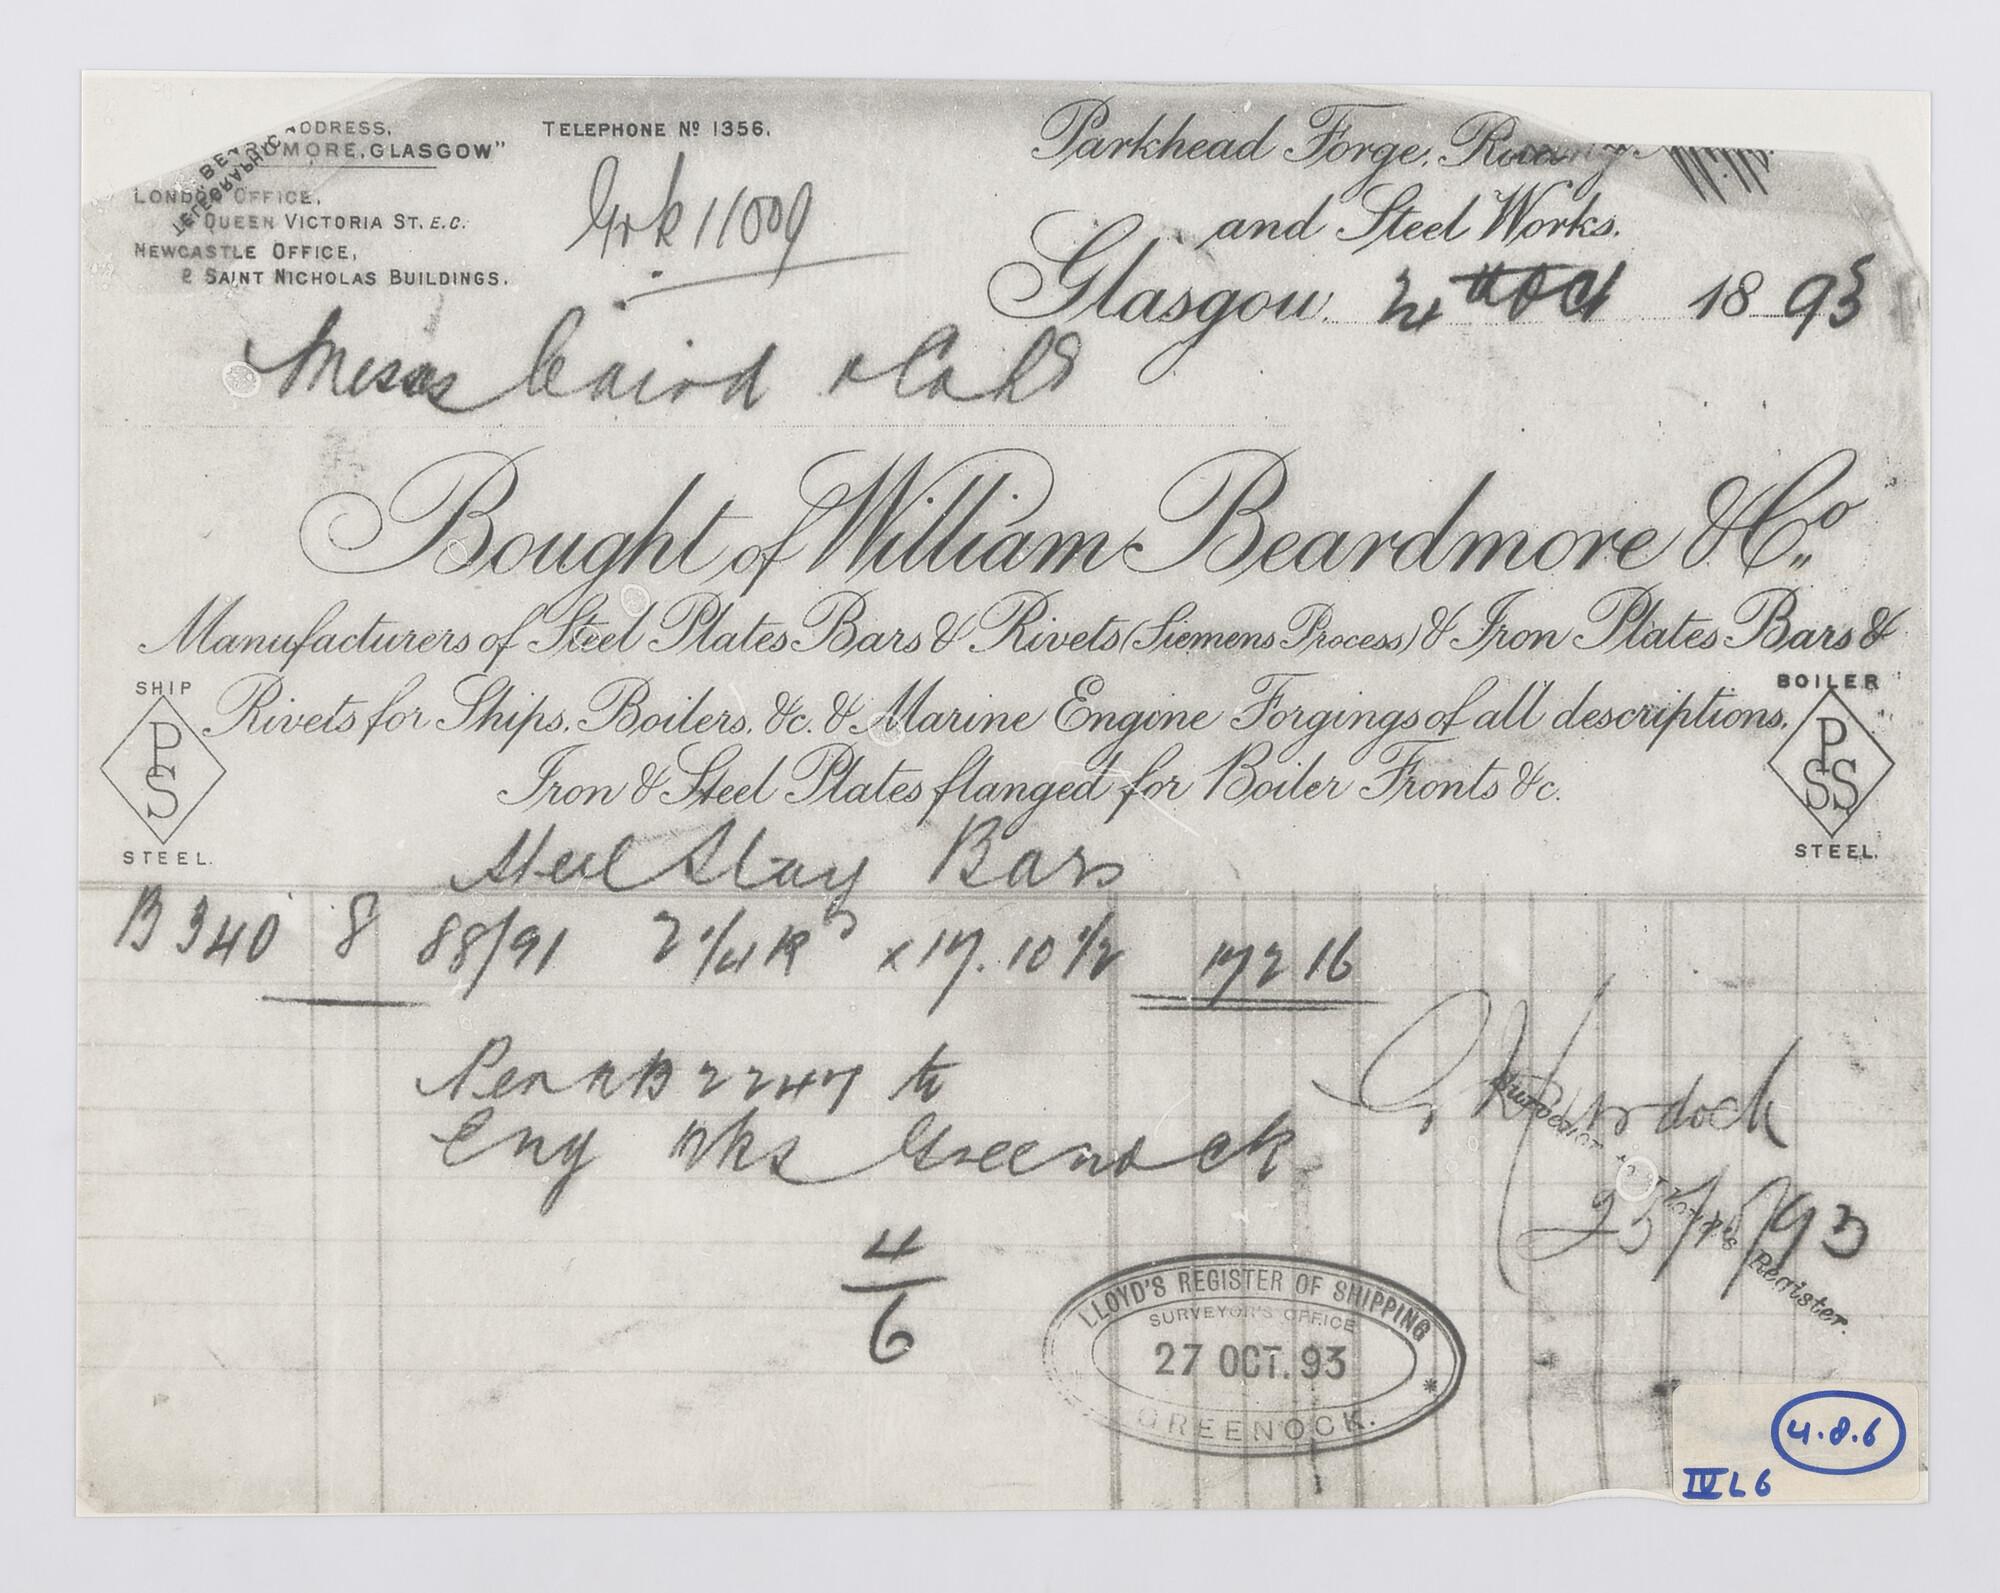 ADDRESS,
MORE, GLASGOW"
TELEGRAPHIC
LONDON OFFICE,
QUEEN VICTORIA ST. E.C.
NEWCASTLE OFFICE,
2 SAINT NICHOLAS BUILDINGS.
TELEPHONE Nº 1356.
11009
Parkhead Forge,
and Steel Works.
Glasgow, Oct 1893
Messrs Caird & Co Ld
Bought of William Beardmore & Co.,
Manufacturers of Steel Plates Bars & Rivets (Siemens Process) & Iron Plates Bars &
Rivets for Ships, Boilers, &c. & Marine Engine Forgings of all descriptions.
Iron & Steel Plates flanged for Boiler Fronts &c.
SHIP
PS
STEEL.
BOILER
PSS
STEEL.
Steel Stay Bars
B 340 8 88/91 2 1/4 R x 17. 10 1/2 17 2 16
Per 2247 to
Eng Wks Greenock
Murdock
Surveyor to Lloyd's Register.
25/10/93
4/6
LLOYD'S REGISTER OF SHIPPING
SURVEYOR'S OFFICE
27 OCT. 93
GREENOCK.
4.8.6
IV L 6